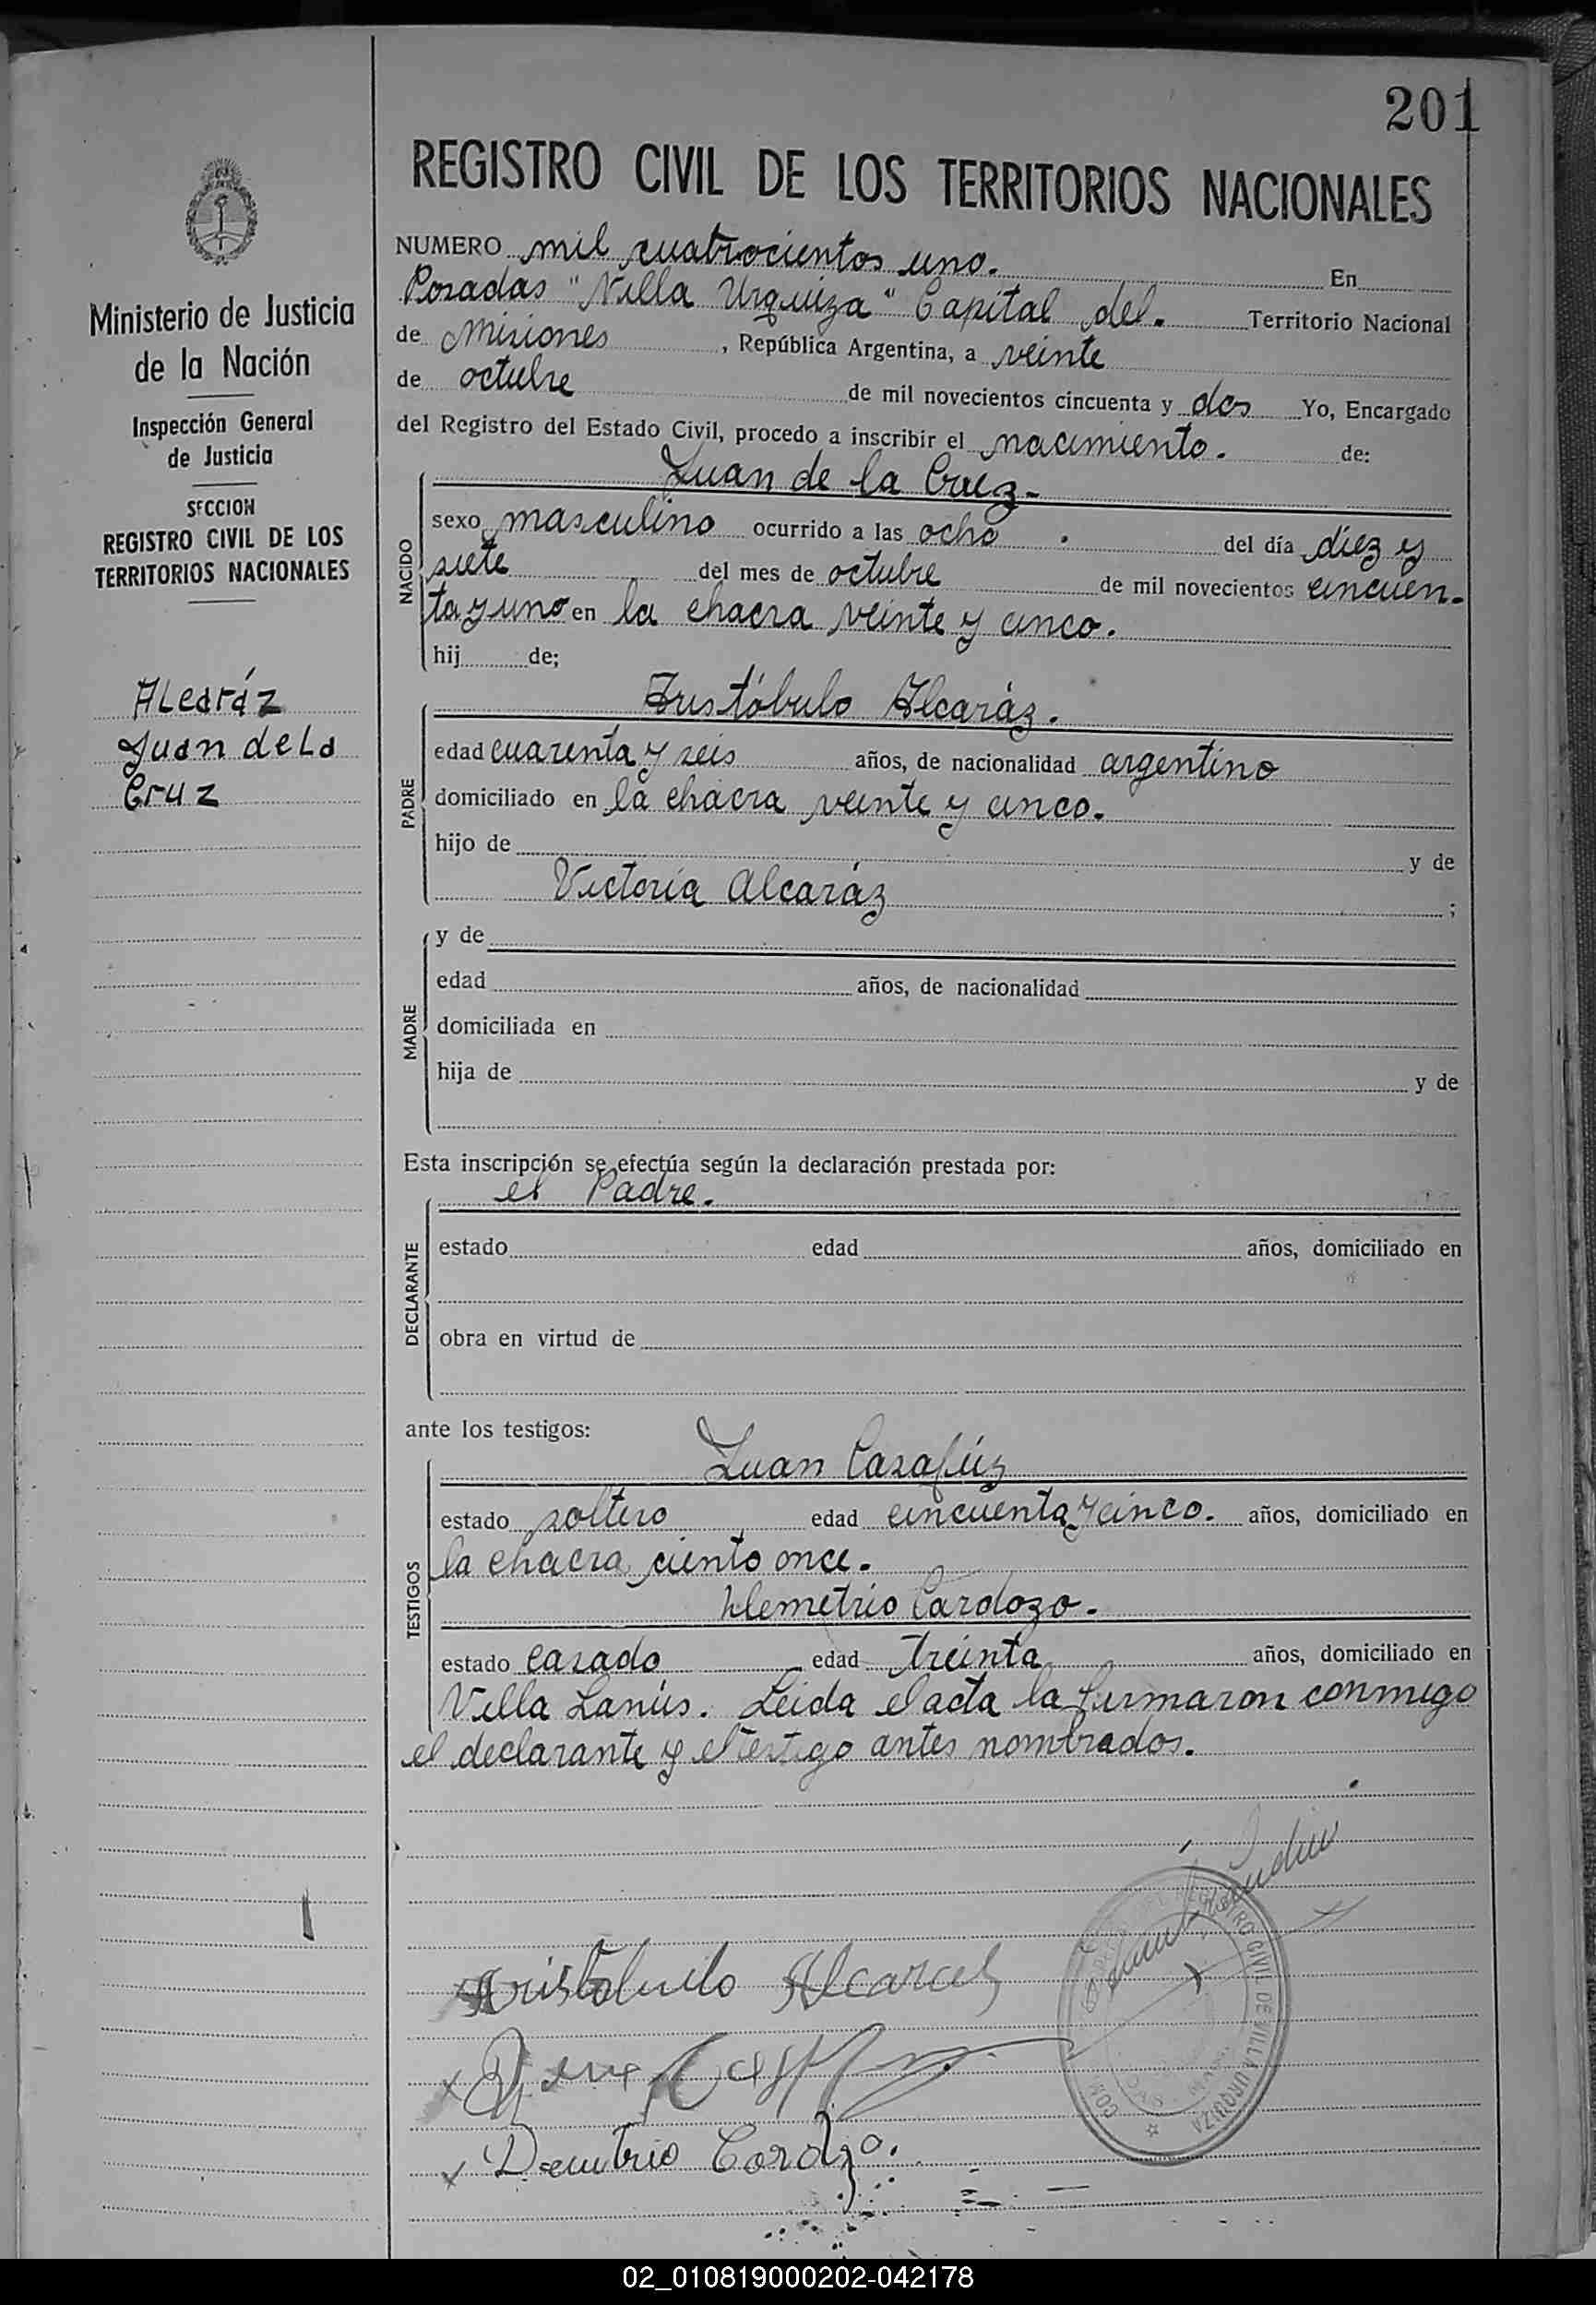 201
REGISTRO CIVIL DE LOS TERRITORIOS NACIONALES
Ministerio de Justicia
de la Nación
Inspección General
de Justicia
SECCION
REGISTRO CIVIL DE LOS
TERRITORIOS NACIONALES
Alcaráz
Juan de La
Cruz
NUMERO mil cuatrocientos uno. En
Posadas "Villa Urquiza" Capital del. Territorio Nacional
de Misiones, República Argentina, a veinte
de octubre de mil novecientos cincuenta y dos Yo, Encargado
del Registro del Estado Civil, procedo a inscribir el nacimiento. de:
Juan de la Cruz.-
NACIDO
sexo masculino ocurrido a las ocho. del día diez y
siete del mes de octubre de mil novecientos cincuen-
ta y uno en la chacra veinte y cinco.
hij de;
Aristóbulo Alcaráz.
PADRE
edad cuarenta y seis años, de nacionalidad argentino
domiciliado en la chacra veinte y cinco.
hijo de y de
Victoria Alcaráz ;
MADRE
y de
edad años, de nacionalidad
domiciliada en
hija de y de
Esta inscripción se efectúa según la declaración prestada por:
el Padre.
DECLARANTE
estado edad años, domiciliado en
obra en virtud de
ante los testigos:
Juan Casafúz
TESTIGOS
estado soltero edad cincuenta y cinco. años, domiciliado en
la chacra ciento once.
Demetrio Cardozo.
estado casado edad treinta años, domiciliado en
Villa Lanús. Leida el acta la firmaron conmigo
el declarante y el testigo antes nombrados.
REGISTRO CIVIL DE VILLA URQUIZA
Aristobulo Alcaraz
x
x Demetrio Cardozo.
02_010819000202-042178